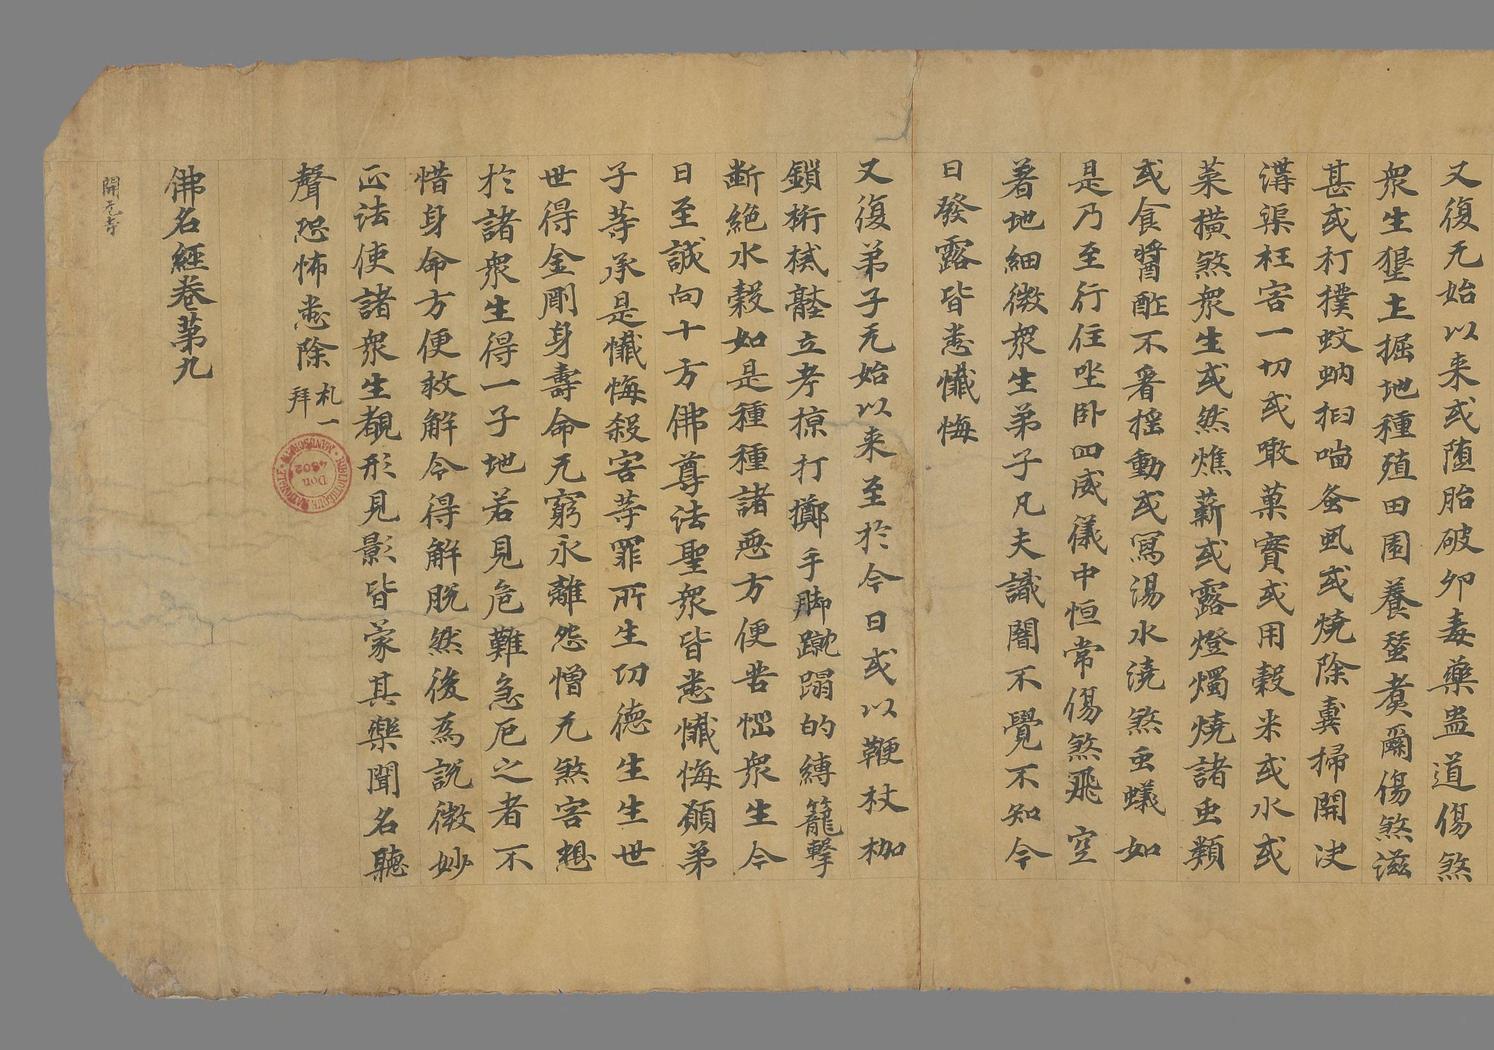 又復无始以来或墮胎破卵毒藥蠱道傷煞
衆生墾土掘地種殖田園養蚕煑𠁅傷煞滋
甚或打撲蚊蚋掐囓蚤虱或燒除糞掃開决
溝渠枉害一切或噉菓實或用穀米或水或
菜撗煞衆生或然燋薪或露燈燭燒諸虫類
或食醬酢不看揺動或冩湯水澆煞虫蟻如
是乃至行住坐卧四威儀中恒常傷煞飛空
著地細微衆生弟子凡夫識闇不覺不知今
日發露皆悉懺悔
又復弟子无始以来至於今日或以鞭杖枷
鎖桁械壓立考掠打擲手脚蹴蹋的縛籠繫
断絶水穀如是種種諸惡方便苦惱衆生今
日至誠向十方佛尊法聖衆皆悉懺悔願弟
子䓁承是懺悔殺害䓁罪所生切徳生生世
世得金剛身壽命无窮永離怨憎无煞害想
於諸衆生得一子地若見危難急厄之者不
惜身命方便救解令得解脱然後為説微妙
正法使諸衆生覩形見影皆蒙其樂聞名聽
聲恐怖悉除 札一拜
佛名經卷第九
開元寺
BIBLIOTHÈQUE NATIONALE MANUSCRITS
Don
4502